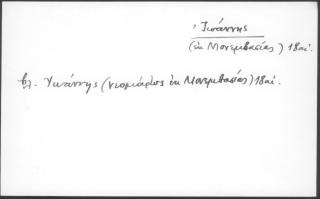 Ἰωάννης
(ἐκ Μονεμβασίας) 18 αἰ.
βλ. Ἰωάννης (νεομάρτυς ἐκ Μονεμβασίας) 18 αἰ.